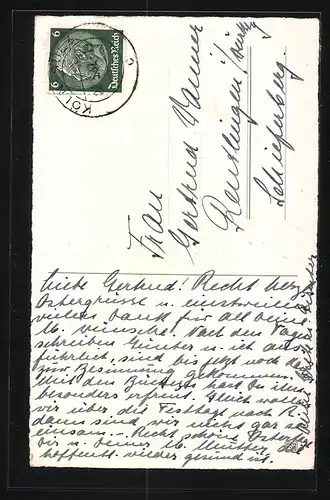 6 Deutsches Reich 6
KÖL
Frau
Gertrud Wanner
Reutlingen / Württ.
Schieferberg
Liebe Gertrud! Recht herzl.
Ostergrüsse u. einstweilen
vielen Dank für all Deine
lb. Wünsche. Nach den Tagen
schreiben Günter u. ich aus-
führlich, sind bis jetzt noch nicht
zur Besinnung gekommen.
Mit den Büchern hast Du ihn
besonders erfreut.
wir über die Festtage nach
dann sind wir nicht gar so
einsam. - Recht schöne Ostertage
Dir u. Deiner lb. Mutter, die
hoffentl. wieder gesund ist.